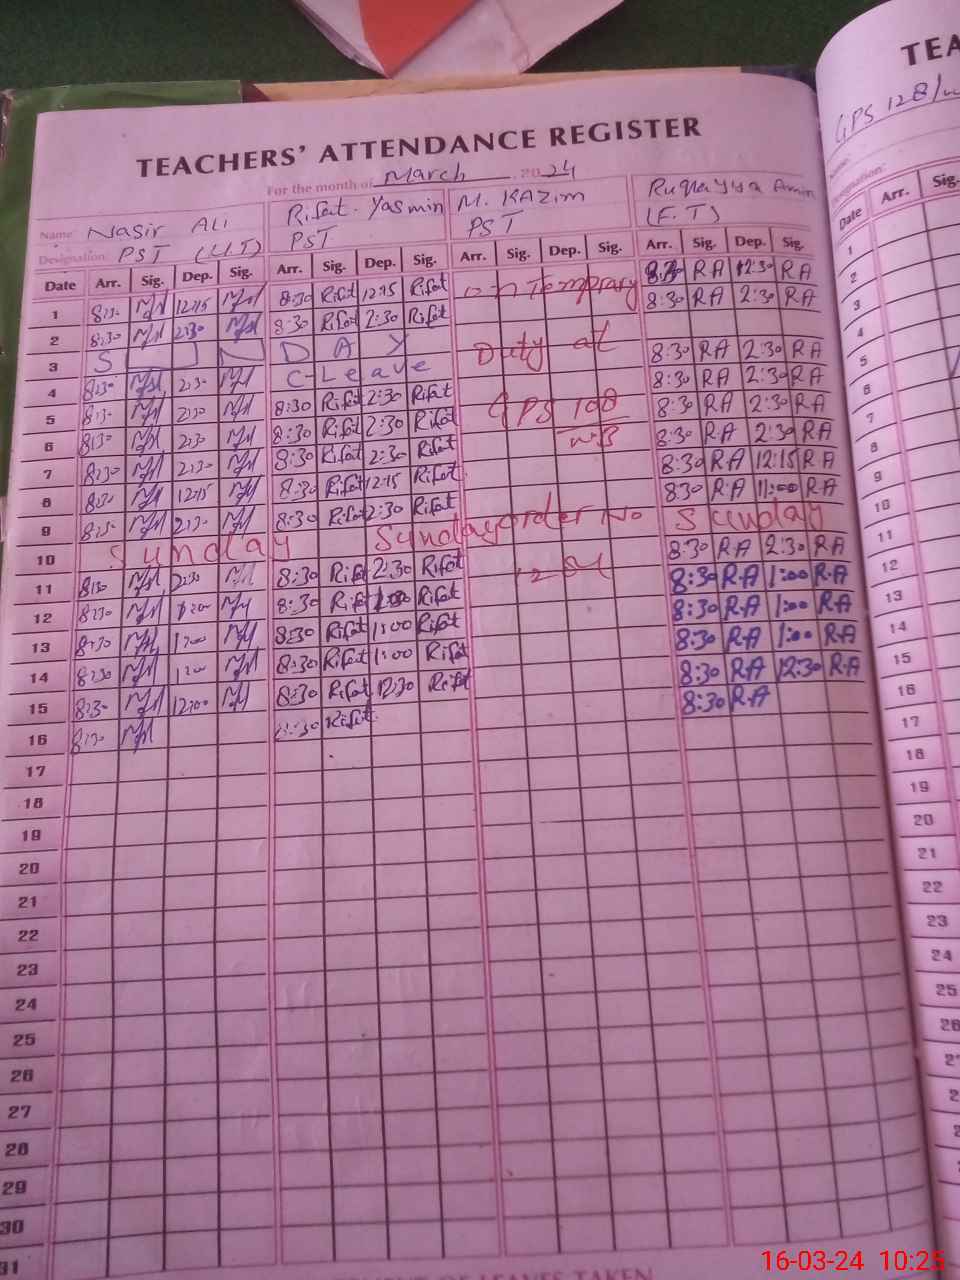 TEA
GPS 128/
TEACHERS' ATTENDANCE REGISTER
For the month of March 2024
Name: Nasir Ali Rifat Yasmin M. KAZim Ruqayya Amin
Designation: PST PST PST (E.T)
Date Arr. Sig. Dep. Sig. Arr. Sig. Dep. Sig. Arr. Sig. Dep. Sig. Arr. Sig. Dep. Sig. Date Arr. Sig.
1 8:30 12:15 8:30 Rifat 12:15 Rifat on Temprary 8:30 RA 12:30 RA
2 8:30 2:30 8:30 Rifat 2:30 Rifat 8:30 RA 2:30 RA
3 S U N D A Y Duty at
4 8:30 2:30 C-Leave 8:30 RA 2:30 RA
5 8:30 2:30 8:30 Rifat 2:30 Rifat GPS 108 8:30 RA 2:30 RA
6 8:30 2:30 8:30 Rifat 2:30 Rifat WB 8:30 RA 2:30 RA
7 8:30 2:30 8:30 Rifat 2:30 Rifat 8:30 RA 2:30 RA
8 8:30 12:15 8:30 Rifat 12:15 Rifat 8:30 RA 12:15 RA
9 8:30 2:30 8:30 Rifat 2:30 Rifat 8:30 RA 11:00 RA
10 Sunday Sunday order No Sunday
11 8:30 2:30 8:30 Rifat 2:30 Rifat 8:30 RA 2:30 RA
12 8:30 1:00 8:30 Rifat 1:00 Rifat 8:30 RA 1:00 RA
13 8:30 1:00 8:30 Rifat 1:00 Rifat 8:30 RA 1:00 RA
14 8:30 1:00 8:30 Rifat 1:00 Rifat 8:30 RA 1:00 RA
15 8:30 12:00 8:30 Rifat 12:30 Rifat 8:30 RA 12:30 RA
16 8:30 8:30 Rifat 8:30 RA
17
18
19
20
21
22
23
24
25
26
27
28
29
30
31
1
2
3
4
5
6
7
8
9
10
11
12
13
14
15
16
17
18
19
20
21
22
23
24
25
26
OF LEAVES TAKEN
16-03-24 10:25